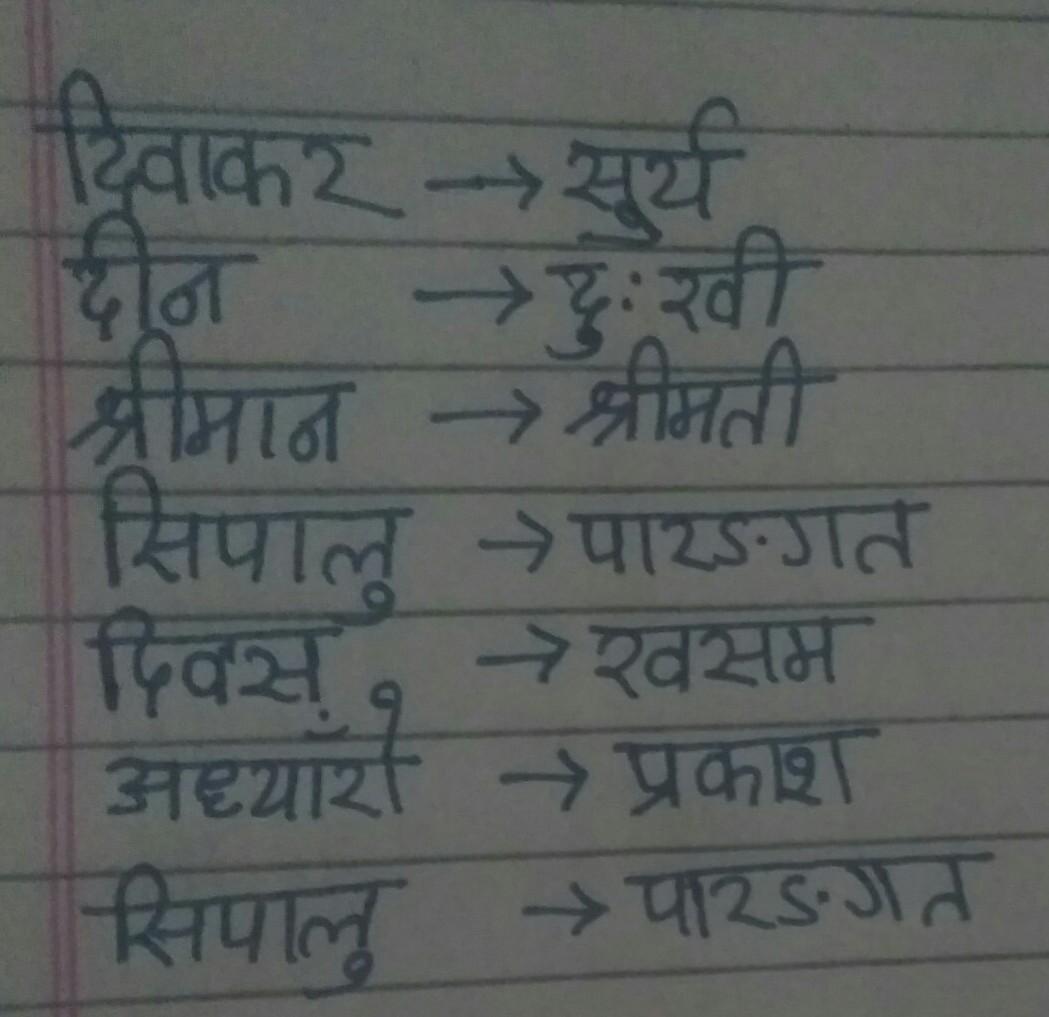 दिवाकर → सुर्य
दीन → दुःखी
श्रीमान → श्रीमती
सिपालु → पारङगत
दिवस → खसम
अध्याँरो → प्रकाश
सिपालु → पारङगत